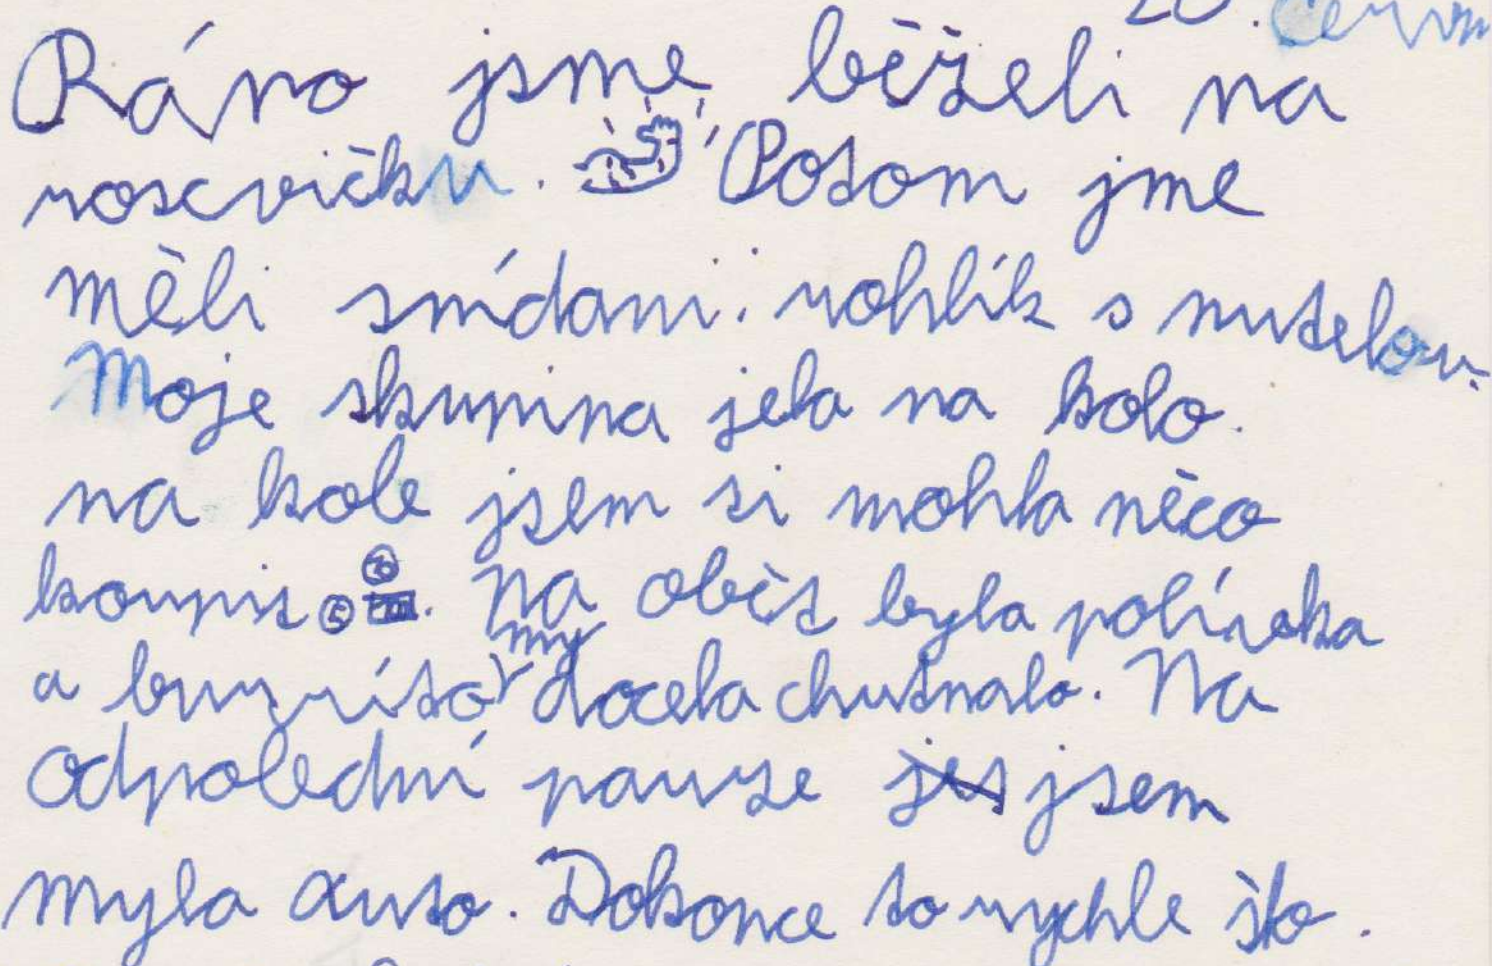 20. červn
Ráno jsme běželi na
roscvičku. Potom jme
měli snídani: rohlík s nutelou.
Moje skupina jela na kolo.
na kole jsem si mohla něco
koupit. Na obět byla polívka
a burríto my docela chutnalo. Na
odpolední pauze jes jsem
myla auto. Dokonce to rychle šlo.